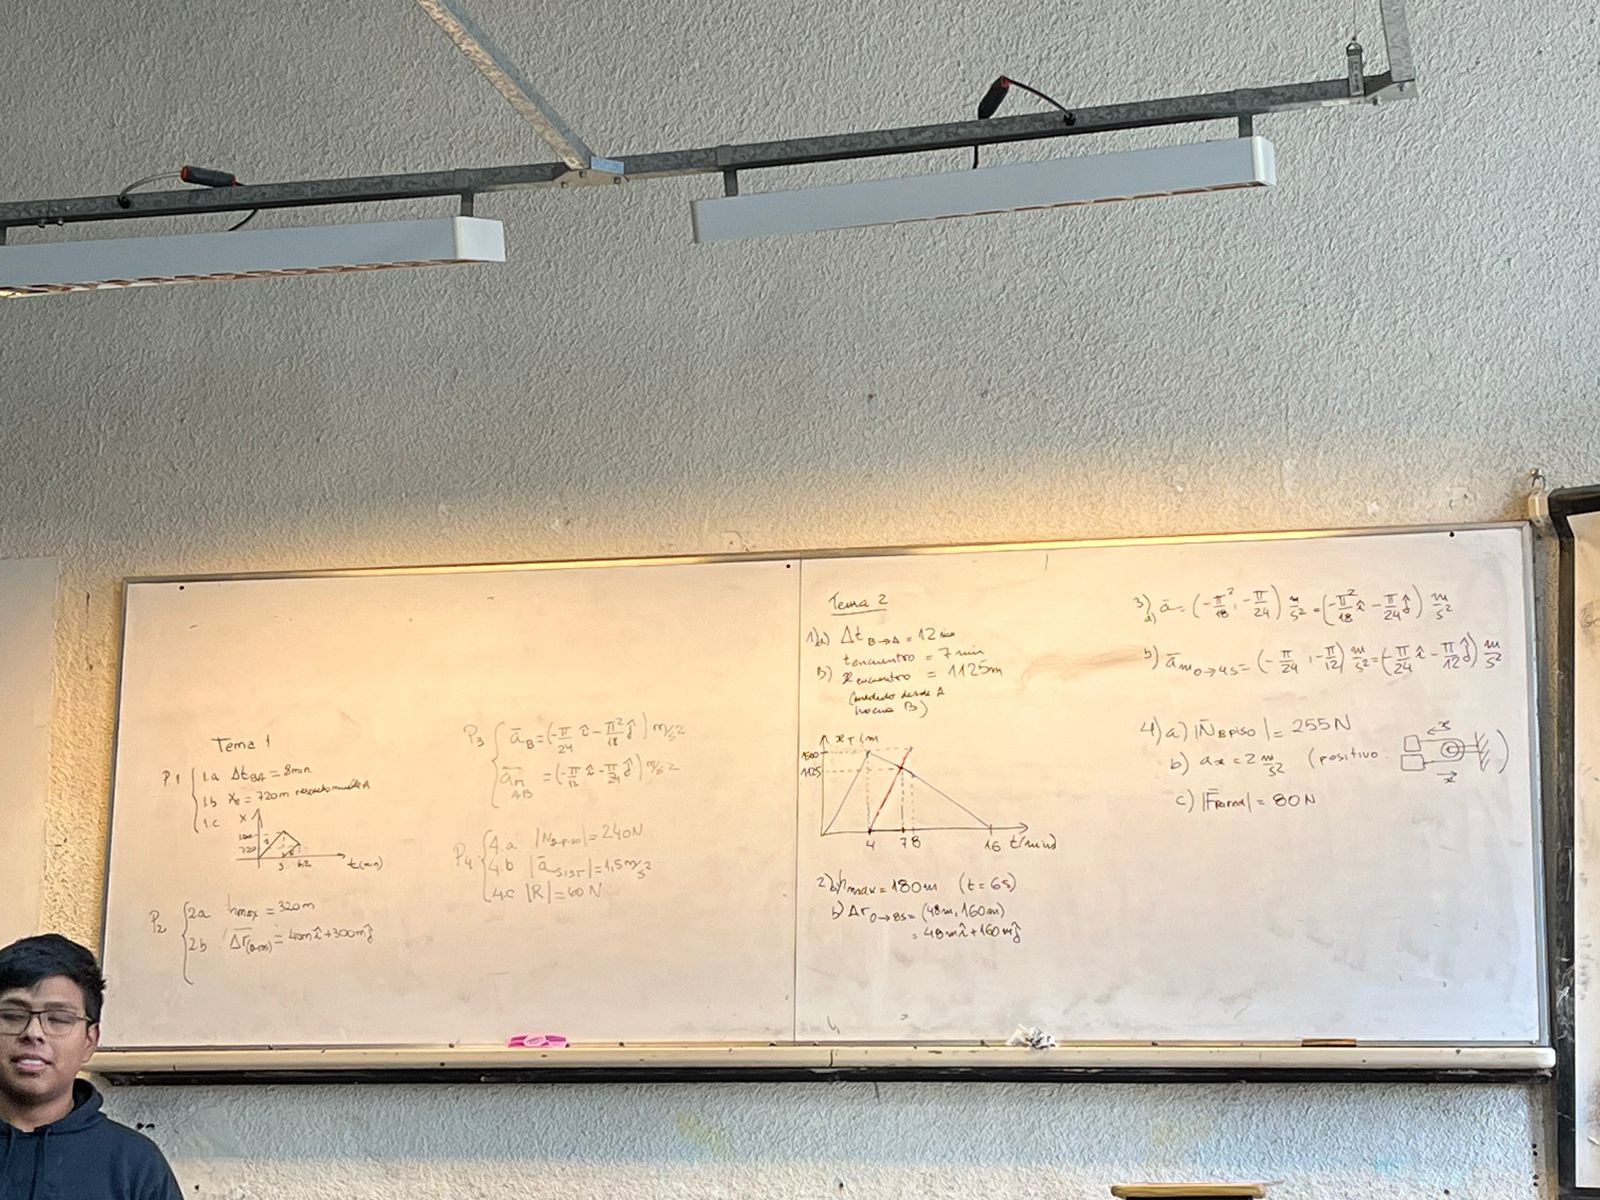 Tema 1
P.1
1.a Δt BA = 8min
1.b X e = 720m respecto muelle A
1.c
X
720
t(min)
P2
2a hmax = 320m
2.b Δr = 40m î + 300m ĵ
P3
ā B = (-π/24 î - π²/18 ĵ) m/s²
ā m AB = (-π/12 î - π/24 ĵ) m/s²
P4
4.a |N 2-piso| = 240N
4.b |ā SIST| = 1,5 m/s²
4.c |R| = 60 N
Tema 2
1) a) Δt B→A = 12 min
t encuentro = 7 min
b) x encuentro = 1125m
(medido desde A
hacia B)
x T (m
1500
1125
4 7 8 16 t(min)
2) a) hmax = 180m (t = 6s)
b) Δr 0→8s = (48m, 160m)
= 48m î + 160m ĵ
3) a) ā = (-π²/18 , -π/24) m/s² = (-π²/18 î - π/24 ĵ) m/s²
b) ā m 0→4s = (-π/24 , -π/12) m/s² = (-π/24 î - π/12 ĵ) m/s²
4) a) |N̄ B PISO| = 255N
b) ax = 2 m/s² (positivo x x )
c) |F̄ Pared| = 80N